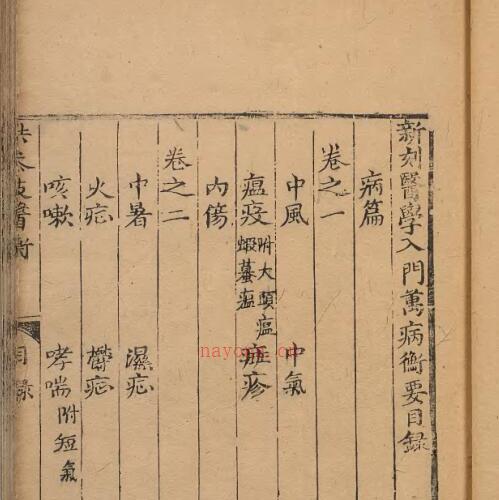 新刻醫學入門萬病衡要目錄
病篇
卷之一
中風 中氣
瘟疫 附大頭瘟 蝦蟇瘟 疹
內傷
卷之二
中暑 濕症
火症 欝症
咳嗽 哮喘 附短氣
目錄
nayo